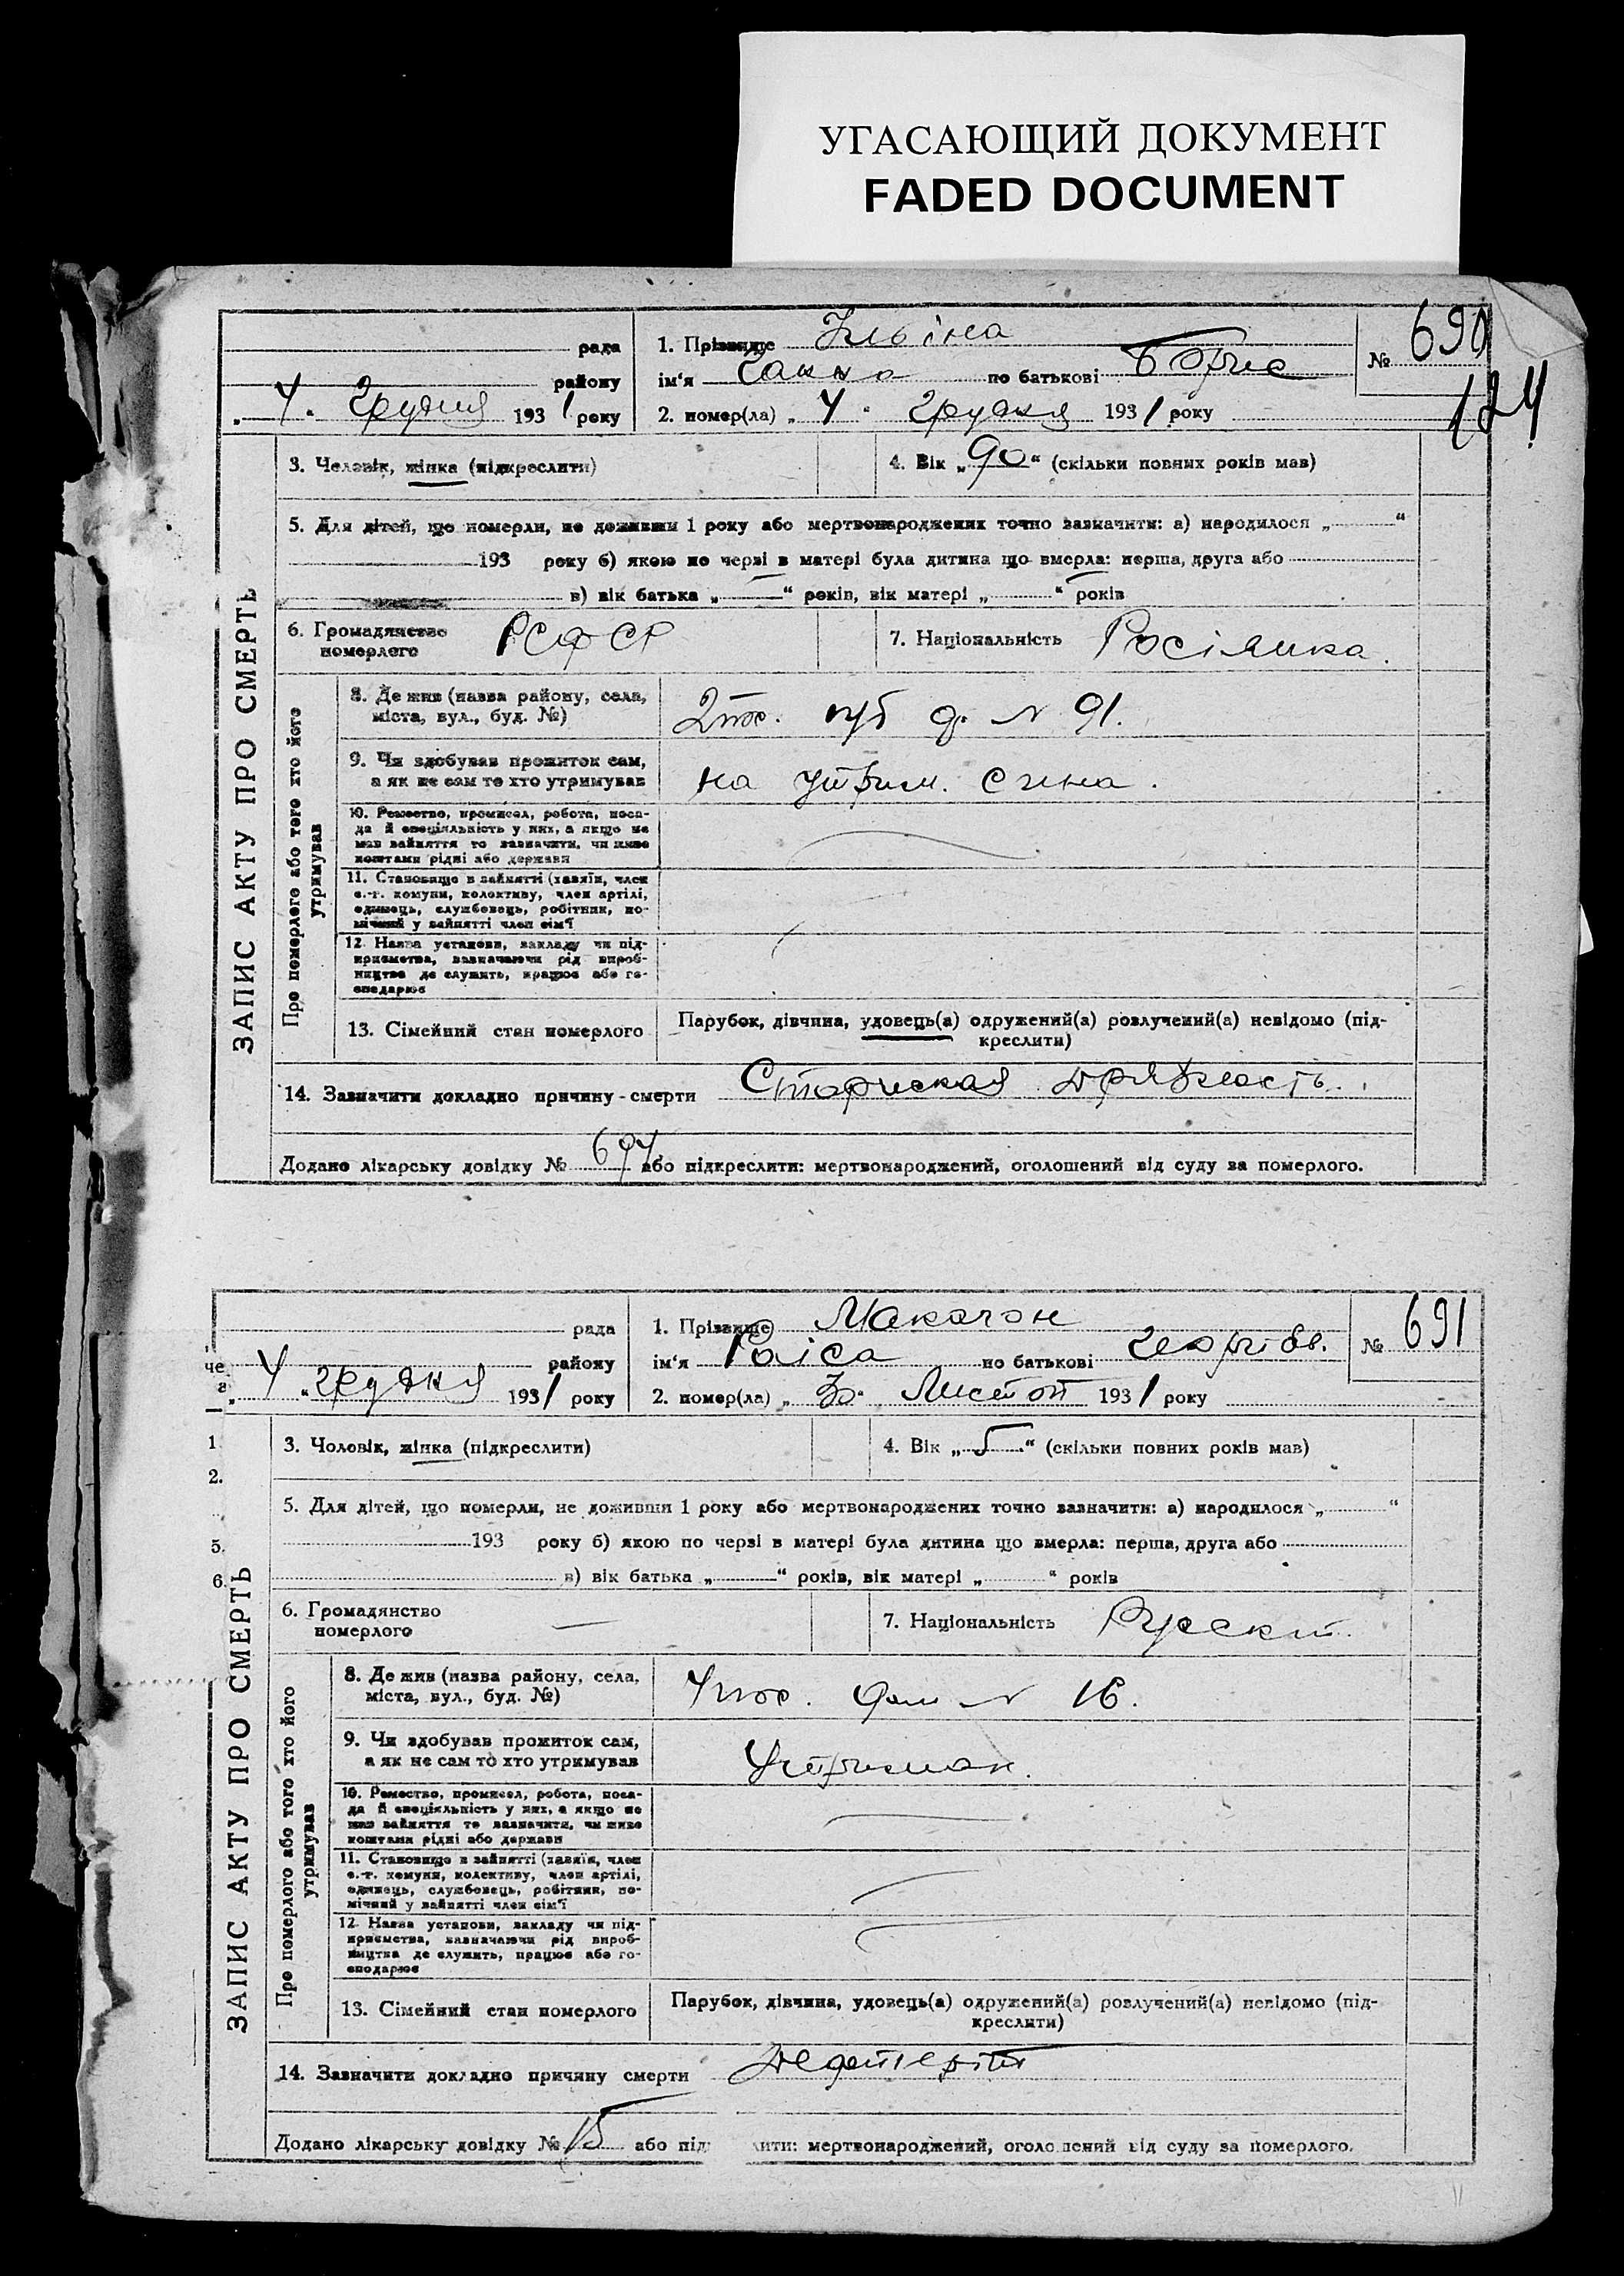 УГАСАЮЩИЙ ДОКУМЕНТ
FADED DOCUMENT
124
ЗАПИС АКТУ ПРО СМЕРТЬ
рада
району
„ 4 " Грудня 1931 року
1. Прізвище Ільіна
ім'я по батькові Борис
2. помер(ла) „ 4 " грудня 1931 року
№ 690
3. Человік, жінка (підкреслити)
4. Вік „ 90 " (скільки повних років мав)
5. Для дітей, що померли, не доживши 1 року або мертвонароджених точно зазначити: а) народилося „ "
193 року б) якою по черзі в матері була дитина що вмерла: перша, друга або
в) вік батька „ " років, вік матері „ " років
6. Громадянство
померлого
РСФСР
7. Національність Росіянка.
Про померлего або того хто його
утримував
8. Де жив (назва району, села,
міста, вул., буд. №)
д. N 91.
9. Чи здобував прожиток сам,
а як не сам то хто утримував
на утрим. сина.
10. Ремество, промисел, робота, поса-
да й спеціяльність у них, а якщо не
мав зайняття то зазначити, чи живе
коштами рідні або держави
11. Становище в зайнятті (хазяїн, член
с.-г. комуни, колективу, член артілі,
одинець, службовець, робітник, по-
мічний у зайнятті член сім'ї
12. Назва установи, закладу чи під-
приємства, зазначаючи рід вироб-
ництва де служить, працює або го-
сподарює
13. Сімейний стан померлого
Парубок, дівчина, удовець(а) одружений(а) розлучений(а) невідомо (під-
креслити)
14. Зазначити докладно причину смерти Старческая дряблость.
Додано лікарську довідку № 694 або підкреслити: мертвонароджений, оголошений від суду за померлого.
ЗАПИС АКТУ ПРО СМЕРТЬ
рада
району
„ 4 " грудня 1931 року
1. Прізвище Макагон
ім'я Раіса по батькові Георгіев.
2. помер(ла) „ 30 " Листоп 1931 року
№ 691
3. Чоловік, жінка (підкреслити)
4. Вік „ 5 " (скільки повних років мав)
5. Для дітей, що померли, не доживши 1 року або мертвонароджених точно зазначити: а) народилося „ "
193 року б) якою по черзі в матері була дитина що вмерла: перша, друга або
в) вік батька „ " років, вік матері „ " років
6. Громадянство
померлого
7. Національність Русский.
Про померлого або того хто його
утримував
8. Де жив (назва району, села,
міста, вул., буд. №)
дом N 16.
9. Чи здобував прожиток сам,
а як не сам то хто утримував
Утриман.
10. Ремество, промисел, робота, поса-
да й спеціяльність у них, а якщо не
мав зайняття то зазначити, чи живе
коштами рідні або держави
11. Становище в зайнятті (хазяїн, член
с.-г. комуни, колективу, член артілі,
одинець, службовець, робітник, по-
мічний у зайнятті член сім'ї
12. Назва установи, закладу чи під-
приємства, зазначаючи рід вироб-
ництва де служить, працює або го-
сподарює
13. Сімейний стан померлого
Парубок, дівчина, удовець(а) одружений(а) розлучений(а) невідомо (під-
креслити)
14. Зазначити докладно причину смерти
Додано лікарську довідку № 15 або під лити: мертвонароджений, оголошений від суду за померлого.